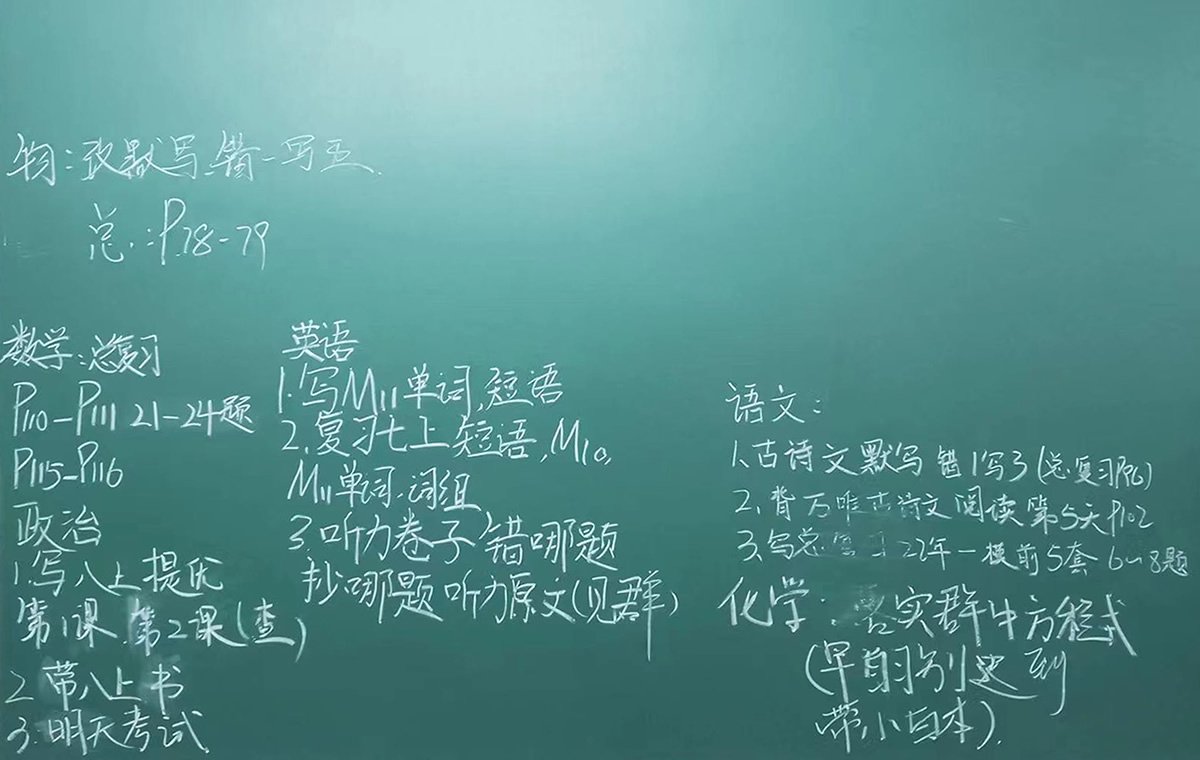 物:改默写.错一写五.
总:P.78-79
数学:总复习
P110-P111 21-24题
P115-P116
政治
1.写八上提优
第1课.第2课(查)
2.带八上书
3.明天考试
英语
1.写M11单词,短语
2.复习七上短语,M10,
M11单词.词组
3.听力卷子错哪题
抄哪题听力原文(见群)
语文:
1.古诗文默写错1写3(总复习)
2.背万唯古诗文阅读第5天P102
3.写总复习22年一模前5套6~8题
化学:实群中方程式
(早自习别迟到
带小白本).